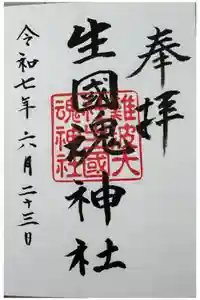 奉拝
生國魂神社
令和七年六月二十三日
難波大
社生國
魂神社